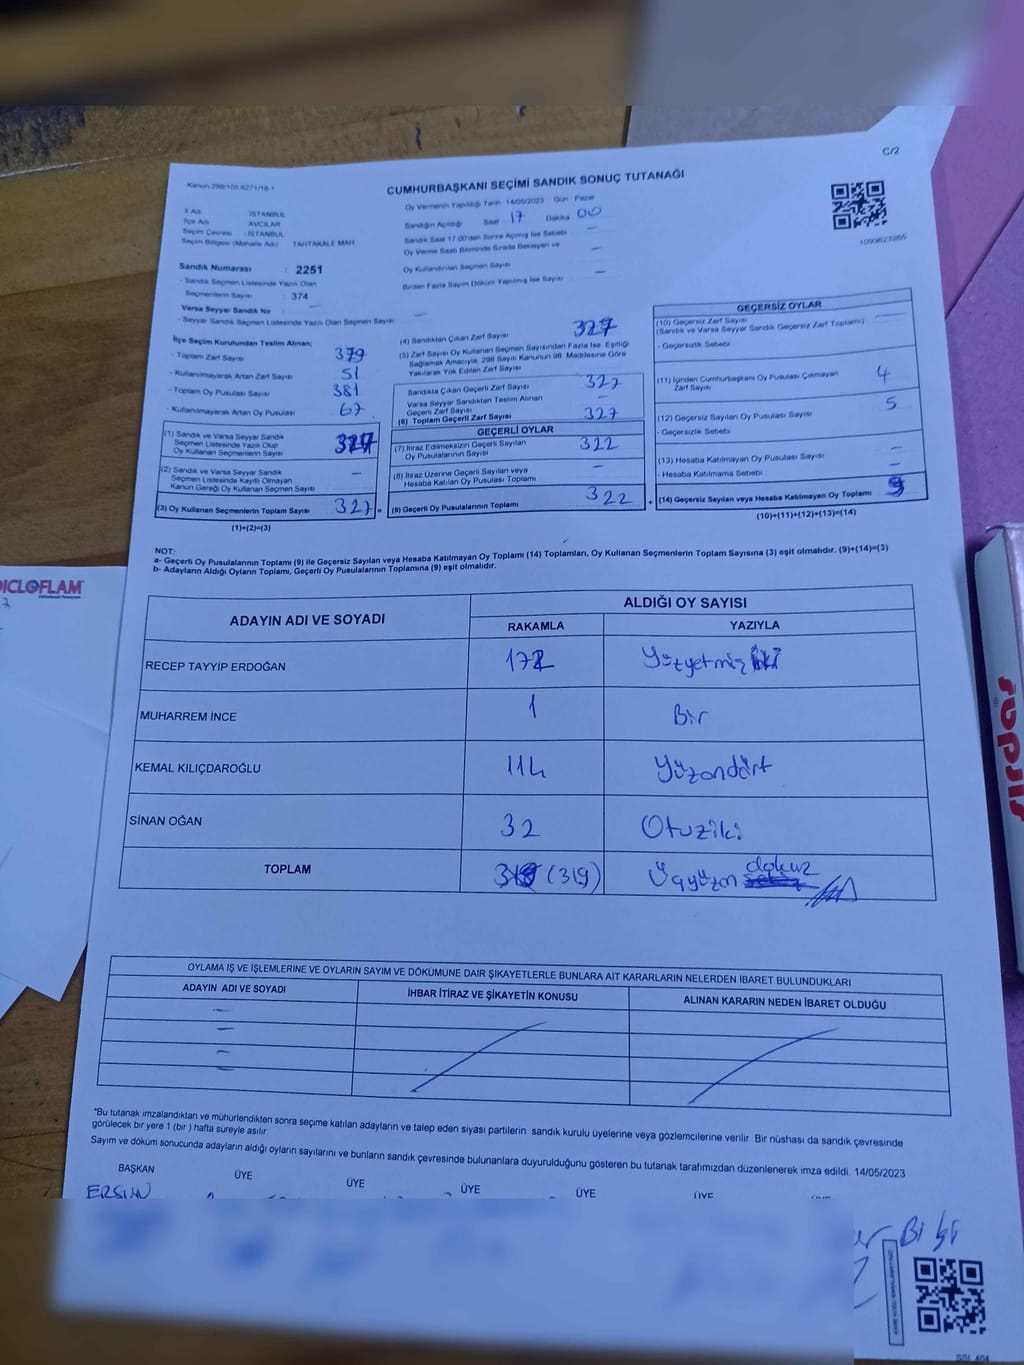 C/2
Kanun:298/105,6271/18-1
CUMHURBAŞKANI SEÇİMİ SANDIK SONUÇ TUTANAĞI
1099623265
İl Adı : İSTANBUL
İlçe Adı : AVCILAR
Seçim Çevresi : İSTANBUL
Seçim Bölgesi (Mahalle Adı) : TAHTAKALE MAH.
Oy Vermenin Yapıldığı Tarih 14/05/2023 Gün Pazar
Sandığın Açıldığı Saat 17 Dakika 00
Sandık Saat 17:00'den Sonra Açılmış İse Sebebi —
Oy Verme Saati Bitiminde Sırada Bekleyen ve
Oy Kullandırılan Seçmen Sayısı —
Birden Fazla Sayım Döküm Yapılmış İse Sayısı —
Sandık Numarası : 2251
- Sandık Seçmen Listesinde Yazılı Olan
Seçmenlerin Sayısı : 374
Varsa Seyyar Sandık No —
- Seyyar Sandık Seçmen Listesinde Yazılı Olan Seçmen Sayısı —
İlçe Seçim Kurulundan Teslim Alınan;
- Toplam Zarf Sayısı 379
- Kullanılmayarak Artan Zarf Sayısı 51
- Toplam Oy Pusulası Sayısı 381
- Kullanılmayarak Artan Oy Pusulası 67
(1) Sandık ve Varsa Seyyar Sandık
Seçmen Listesinde Yazılı Olup
Oy Kullanan Seçmenlerin Sayısı 327
(2) Sandık ve Varsa Seyyar Sandık
Seçmen Listesinde Kayıtlı Olmayan
Kanun Gereği Oy Kullanan Seçmen Sayısı —
(3) Oy Kullanan Seçmenlerin Toplam Sayısı 327 =
(1)+(2)=(3)
(4) Sandıktan Çıkan Zarf Sayısı 327
(5) Zarf Sayısı Oy Kullanan Seçmen Sayısından Fazla İse, Eşitliği
Sağlamak Amacıyla 298 Sayılı Kanunun 98. Maddesine Göre
Yakılarak Yok Edilen Zarf Sayısı —
Sandıkta Çıkan Geçerli Zarf Sayısı 327
Varsa Seyyar Sandıktan Teslim Alınan
Geçerli Zarf Sayısı —
(6) Toplam Geçerli Zarf Sayısı 327
GEÇERLİ OYLAR
(7) İtiraz Edilmeksizin Geçerli Sayılan
Oy Pusulalarının Sayısı 322
(8) İtiraz Üzerine Geçerli Sayılan veya
Hesaba Katılan Oy Pusulası Toplamı —
(9) Geçerli Oy Pusulalarının Toplamı 322 +
GEÇERSİZ OYLAR
(10) Geçersiz Zarf Sayısı
(Sandık ve Varsa Seyyar Sandık Geçersiz Zarf Toplamı) —
- Geçersizlik Sebebi
(11) İçinden Cumhurbaşkanı Oy Pusulası Çıkmayan
Zarf Sayısı 4
(12) Geçersiz Sayılan Oy Pusulası Sayısı 5
- Geçersizlik Sebebi
(13) Hesaba Katılmayan Oy Pusulası Sayısı —
- Hesaba Katılmama Sebebi —
(14) Geçersiz Sayılan veya Hesaba Katılmayan Oy Toplamı 9
(10)+(11)+(12)+(13)=(14)
NOT:
a- Geçerli Oy Pusulalarının Toplamı (9) ile Geçersiz Sayılan veya Hesaba Katılmayan Oy Toplamı (14) Toplamları, Oy Kullanan Seçmenlerin Toplam Sayısına (3) eşit olmalıdır. (9)+(14)=(3)
b- Adayların Aldığı Oyların Toplamı, Geçerli Oy Pusulalarının Toplamına (9) eşit olmalıdır.
ADAYIN ADI VE SOYADI
ALDIĞI OY SAYISI
RAKAMLA YAZIYLA
RECEP TAYYİP ERDOĞAN 172 Yüzyetmiş iki
MUHARREM İNCE 1 Bir
KEMAL KILIÇDAROĞLU 114 Yüzondört
SİNAN OĞAN 32 Otuziki
TOPLAM (319) Üçyüzon dokuz
OYLAMA İŞ VE İŞLEMLERİNE VE OYLARIN SAYIM VE DÖKÜMÜNE DAİR ŞİKAYETLERLE BUNLARA AİT KARARLARIN NELERDEN İBARET BULUNDUKLARI
ADAYIN ADI VE SOYADI İHBAR İTİRAZ VE ŞİKAYETİN KONUSU ALINAN KARARIN NEDEN İBARET OLDUĞU
*Bu tutanak imzalandıktan ve mühürlendikten sonra seçime katılan adayların ve talep eden siyasi partilerin sandık kurulu üyelerine veya gözlemcilerine verilir. Bir nüshası da sandık çevresinde
görülecek bir yere 1 (bir ) hafta süreyle asılır.
Sayım ve döküm sonucunda adayların aldığı oyların sayılarını ve bunların sandık çevresinde bulunanlara duyurulduğunu gösteren bu tutanak tarafımızdan düzenlenerek imza edildi. 14/05/2023
BAŞKAN ÜYE ÜYE ÜYE ÜYE ÜYE
ERSİN
DICLOFLAM